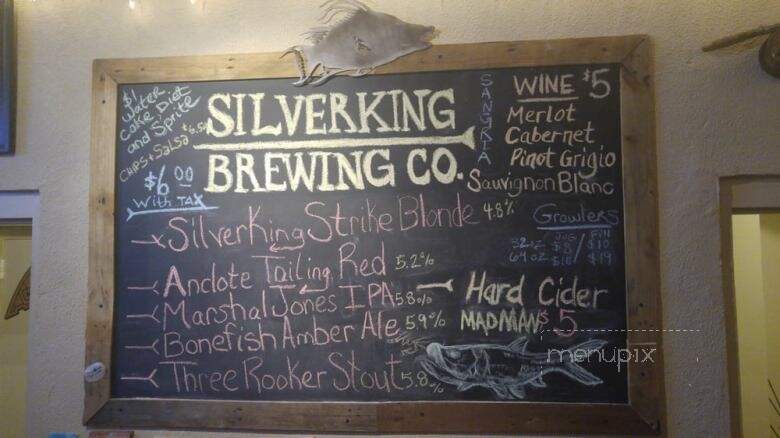 $1
Water
Coke, Diet
and Sprite
CHIPS + SALSA $6.50
SILVERKING
BREWING CO.
$6.00
With TAX
SANGRIA
WINE $5
Merlot
Cabernet
Pinot Grigio
Sauvignon Blanc
SilverKing Strike Blonde 4.8%
Anclote Tailing Red 5.2%
Marshal Jones IPA 5.8%
Bonefish Amber Ale 5.9%
Three Rooker Stout 5.8%
Growlers
JUG / Fill
32oz $8 / $10
64oz $10 / $19
Hard Cider
MADMAN $5
menupix